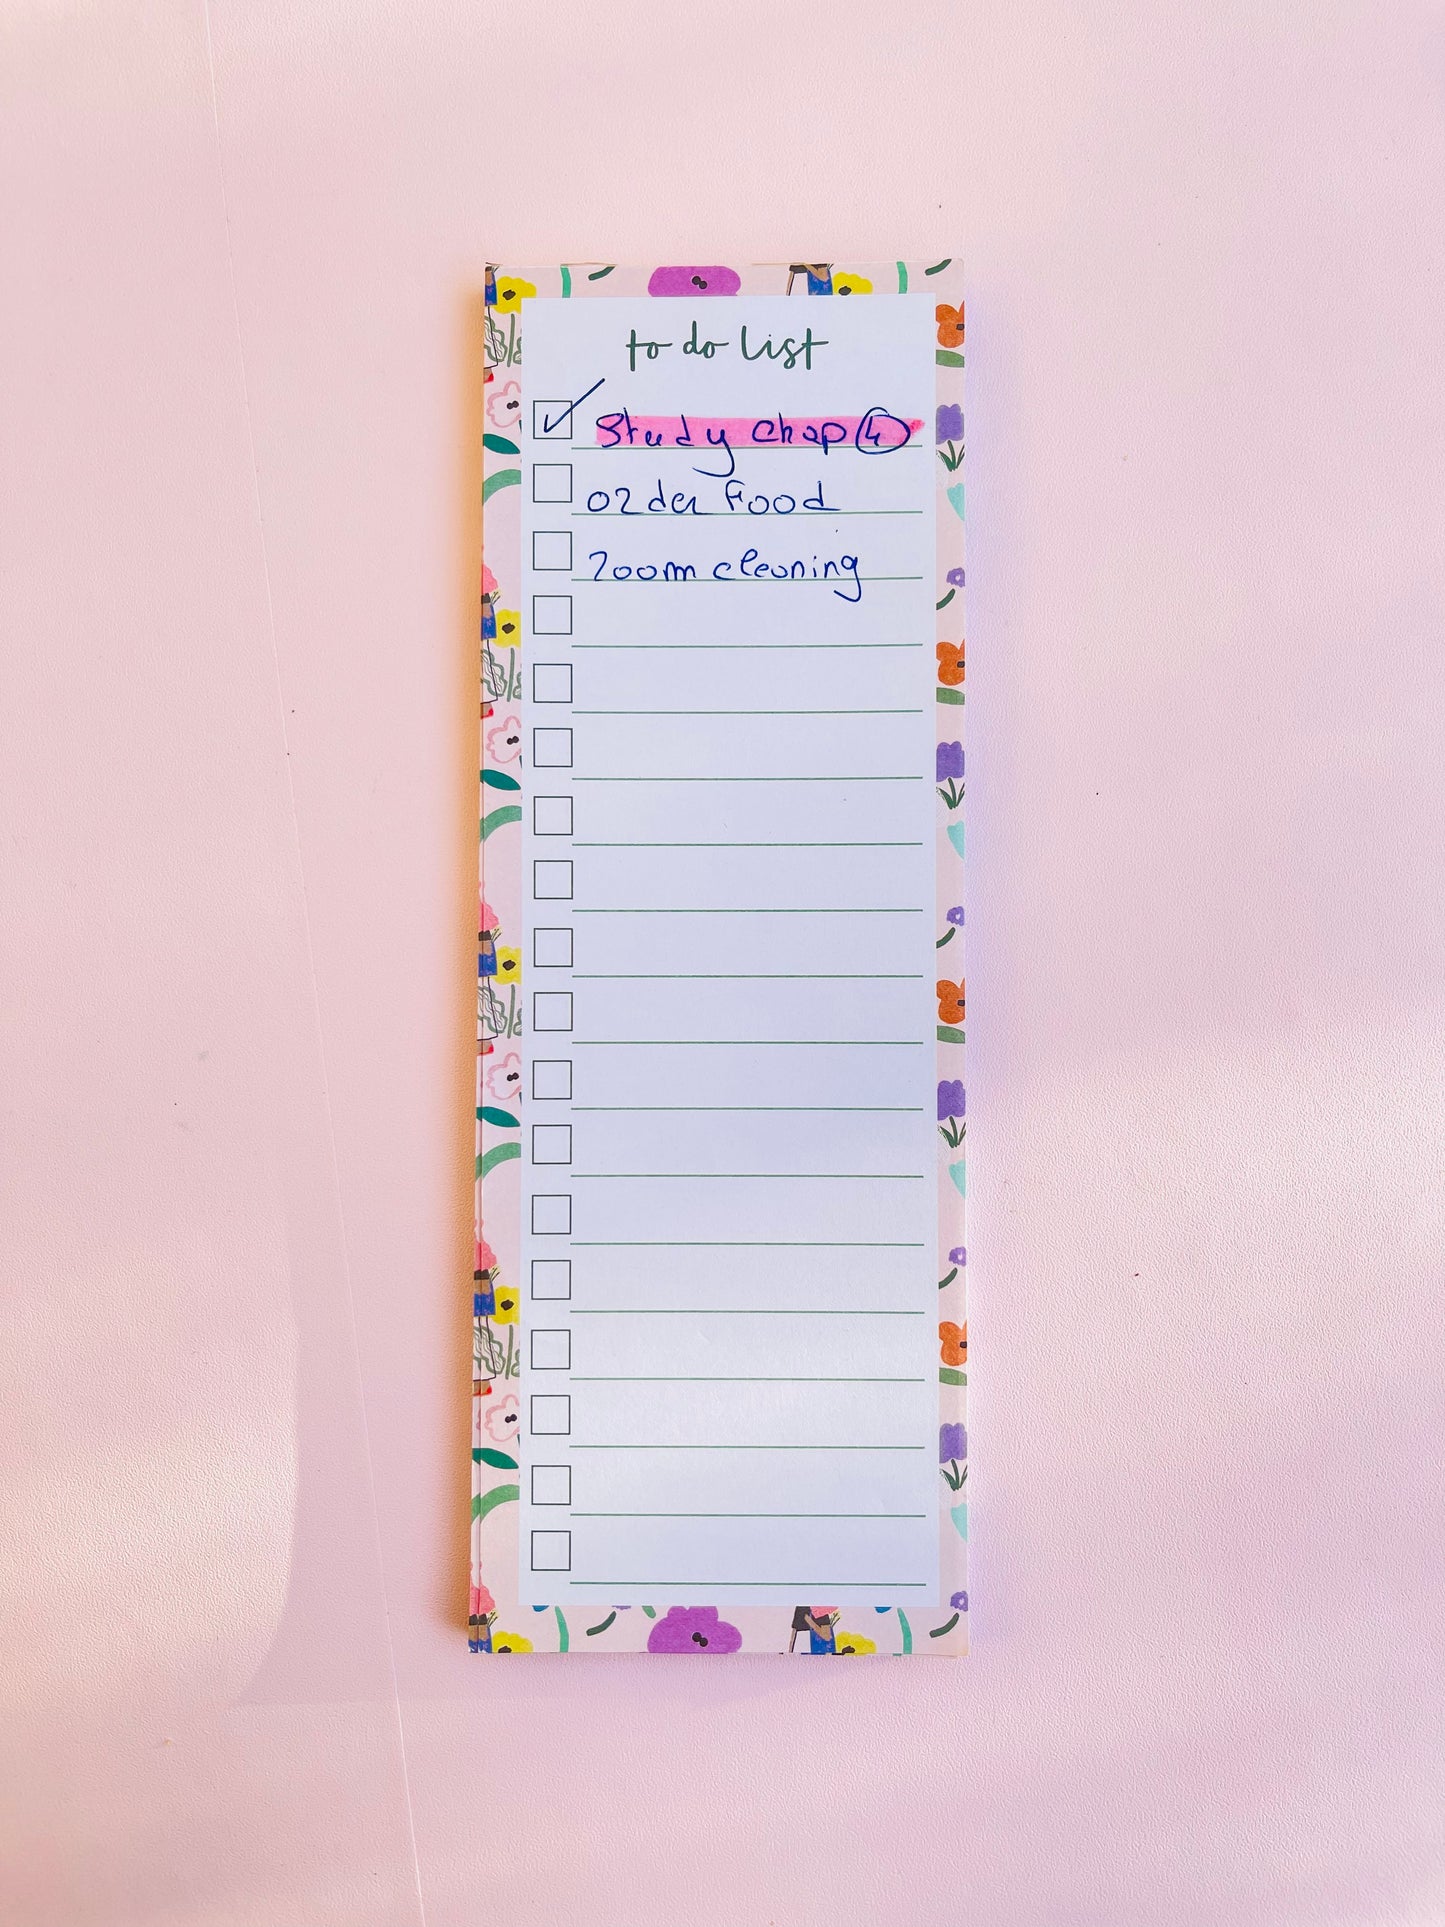 to do list
Study Chap 4
order Food
room cleaning